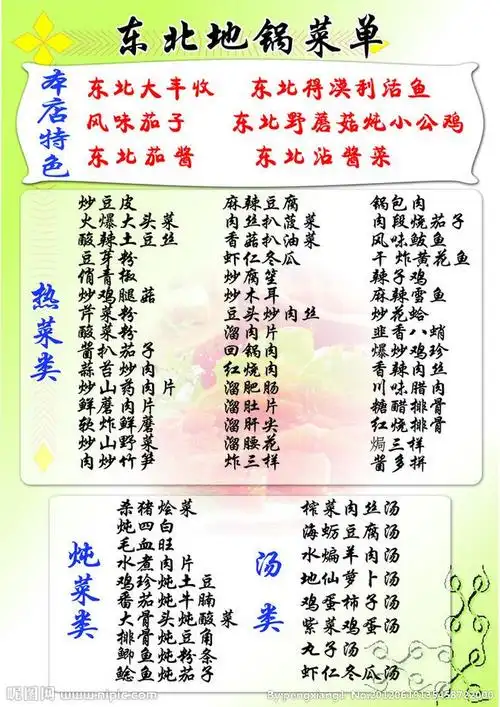 东北地锅菜单
本店特色
东北大丰收 东北得漠利活鱼
风味茄子 东北野蘑菇炖小公鸡
东北茄酱 东北沾酱菜
热菜类
炒豆皮
火爆大头菜
酸辣土豆丝
豆芽粉
俏青椒
炒鸡腿菇
芹菜粉
酸菜粉
酱扒茄子
蒜苔炒肉
炒山药肉片
鲜蘑肉片
软炸鲜蘑
炒山野菜
肉炒竹笋
麻辣豆腐
肉丝扒菠菜
香菇扒油菜
虾仁冬瓜
炒腐笙
炒木耳
豆头炒肉丝
溜肉片
回锅肉
红烧肉
溜肥肠
溜肚片
溜肝尖
溜腰花
炸三样
锅包肉
肉段烧茄子
风味鲅鱼
干炸黄花鱼
辣子鸡
麻辣雪鱼
炒花蛤
韭香八蛸
爆炒鸡珍
香辣肉丝
川味腊肉
糖醋排骨
红烧排骨
焗三样
酱多拼
炖菜类
杀猪烩菜
炖四白
毛血旺
水煮肉片
鸡珍炖土豆
番茄炖牛腩
大骨头炖酸菜
排骨炖豆角
鲫鱼炖粉条
鲶鱼炖茄子
汤类
榨菜肉丝汤
海蛎豆腐汤
水煸羊肉汤
地仙萝卜汤
鸡蛋柿子汤
紫菜鸡蛋汤
九子汤
虾仁冬瓜汤
昵图网 www.nipic.com